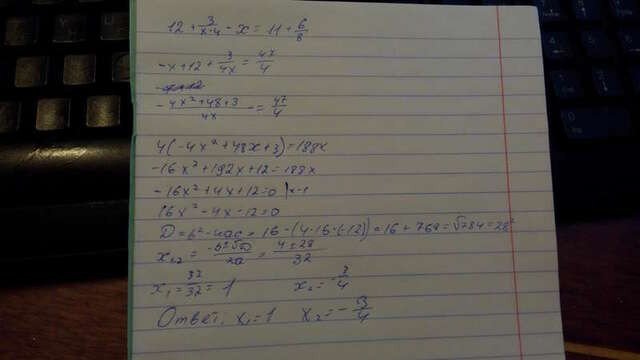 12 + 3/(x·4) - x = 11 + 6/8
-x + 12 + 3/(4x) = 47/4
- (4x² + 48 + 3)/(4x) = 47/4
4(-4x² + 48x + 3) = 188x
-16x² + 192x + 12 = 188x
-16x² + 4x + 12 = 0 |x-1
16x² - 4x - 12 = 0
D = b² - 4ac = 16 - (4·16·(-12)) = 16 + 768 = √784 = 28²
x₁,₂ = (-b ± √D)/(2a) = (4 ± 28)/32
x₁ = 32/32 = 1 x₂ = -3/4
Ответ: x₁ = 1 x₂ = -3/4